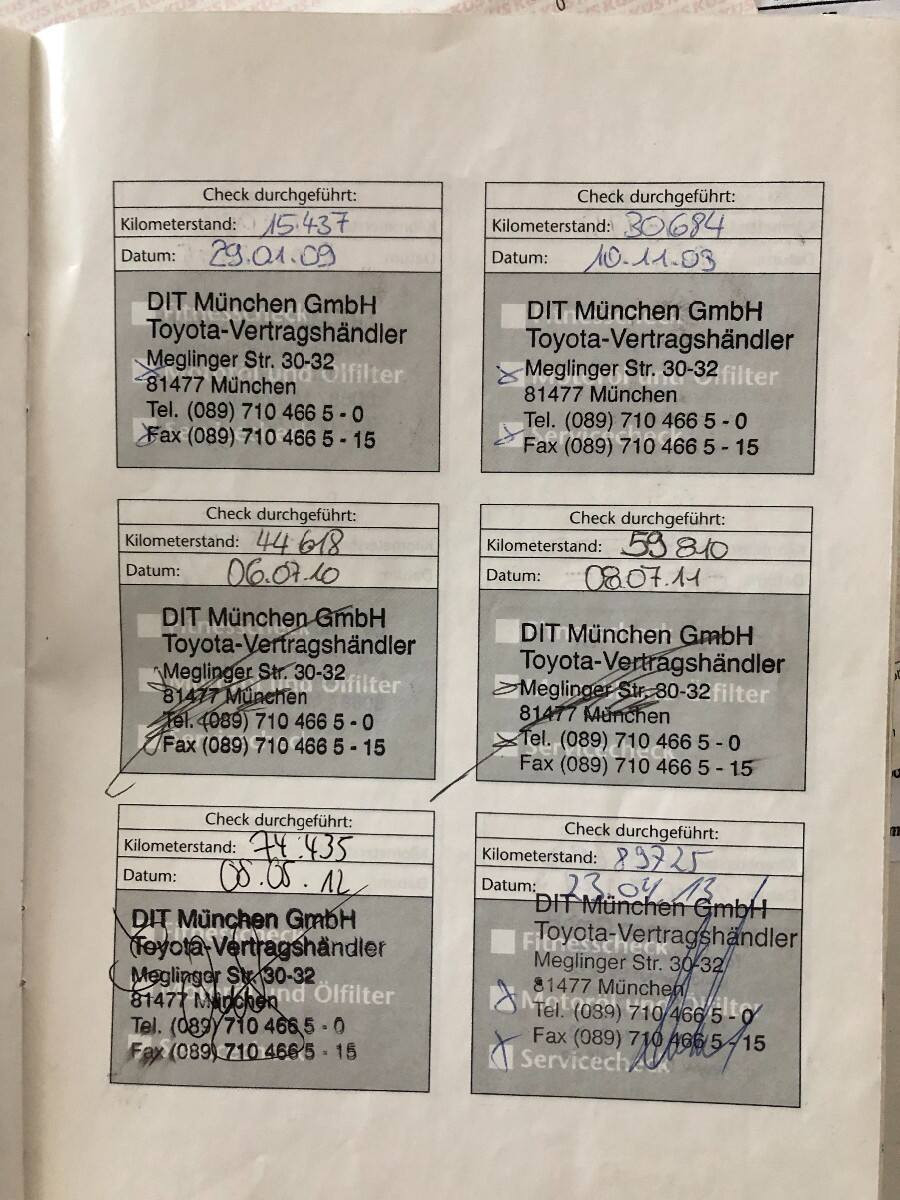 Check durchgeführt:
Kilometerstand: 15.437
Datum: 29.01.09
Fitnesscheck
Motoröl und Ölfilter
Servicecheck
DIT München GmbH
Toyota-Vertragshändler
Meglinger Str. 30-32
81477 München
Tel. (089) 710 466 5 - 0
Fax (089) 710 466 5 - 15
Check durchgeführt:
Kilometerstand: 30684
Datum: 10.11.09
Fitnesscheck
Motoröl und Ölfilter
Servicecheck
DIT München GmbH
Toyota-Vertragshändler
Meglinger Str. 30-32
81477 München
Tel. (089) 710 466 5 - 0
Fax (089) 710 466 5 - 15
Check durchgeführt:
Kilometerstand: 44 618
Datum: 06.07.10
Fitnesscheck
Motoröl und Ölfilter
Servicecheck
DIT München GmbH
Toyota-Vertragshändler
Meglinger Str. 30-32
81477 München
Tel. (089) 710 466 5 - 0
Fax (089) 710 466 5 - 15
Check durchgeführt:
Kilometerstand: 59 810
Datum: 08.07.11
Fitnesscheck
Motoröl und Ölfilter
Servicecheck
DIT München GmbH
Toyota-Vertragshändler
Meglinger Str. 30-32
81477 München
Tel. (089) 710 466 5 - 0
Fax (089) 710 466 5 - 15
Check durchgeführt:
Kilometerstand: 74.435
Datum: 08.05.12
Fitnesscheck
Motoröl und Ölfilter
Servicecheck
DIT München GmbH
Toyota-Vertragshändler
Meglinger Str. 30-32
81477 München
Tel. (089) 710 466 5 - 0
Fax (089) 710 466 5 - 15
Check durchgeführt:
Kilometerstand: 89725
Datum: 23.04.13
Fitnesscheck
Motoröl und Ölfilter
Servicecheck
DIT München GmbH
Toyota-Vertragshändler
Meglinger Str. 30-32
81477 München
Tel. (089) 710 466 5 - 0
Fax (089) 710 466 5 - 15